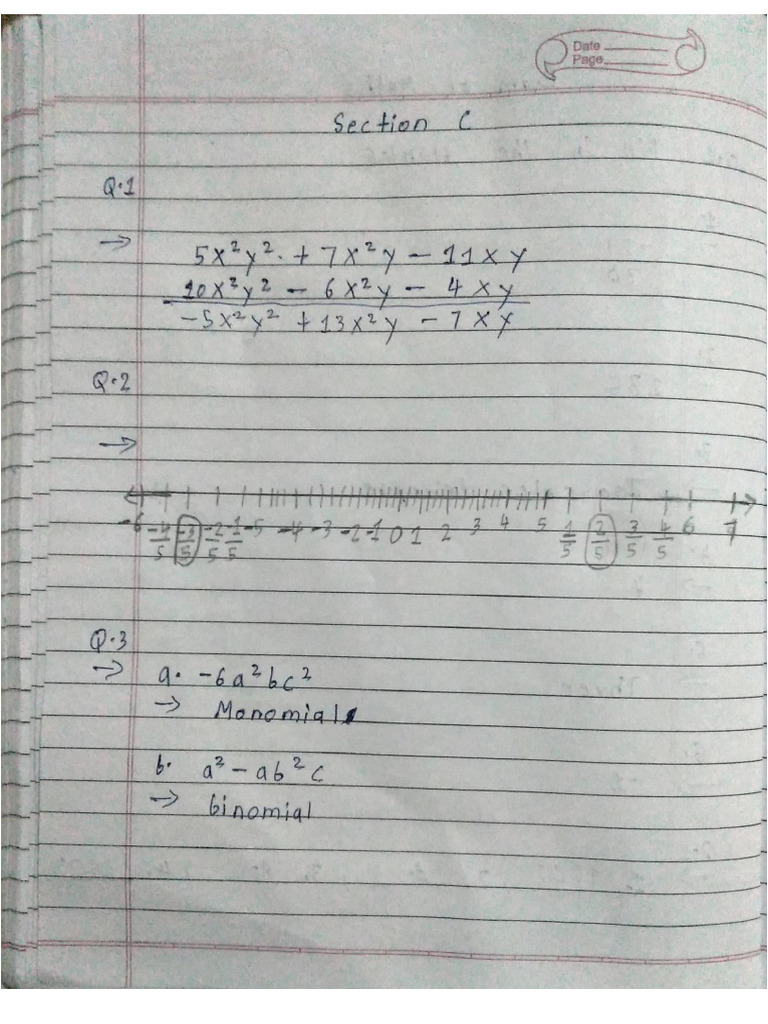 Date
Page
Section C
Q.1
→ 5x²y² + 7x²y - 11xy
- 10x²y² - 6x²y - 4xy
-5x²y² + 13x²y - 7xy
Q.2
→
-6 -4/5 -3/5 -2/5 -1/5 -5 -4 -3 -2 -1 0 1 2 3 4 5 1/5 2/5 3/5 4/5 6 7
Q.3
→ a. -6a²bc²
→ Monomial
b. a³ - ab²c
→ binomial